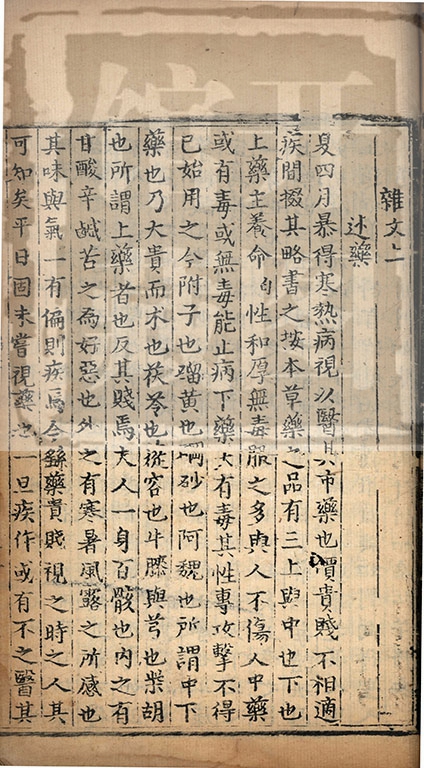 雜文二
述藥
夏四月暴得寒熱病視以醫其市藥也價貴賤不相適
疾間掇其略書之按本草藥之品有三上與中也下也
上藥主養命 性和厚無毒服之多與人不傷人中藥
或有毒或無毒能止病下藥大有毒其性專攻擊不得
已始用之今附子也瑠黃也硇砂也阿魏也所謂中下
藥也乃大貴而朮也茯苓也從容也牛膝與芎也柴胡
也所謂上藥者也反其賤焉夫人一身百骸也內之有
甘酸辛鹹苦之為好惡也外之有寒暑風露之所感也
其味與氣一有偏則疾焉今繇藥貴賤視之時之人其
可知矣平日固未嘗視藥也一旦疾作或有不之醫其